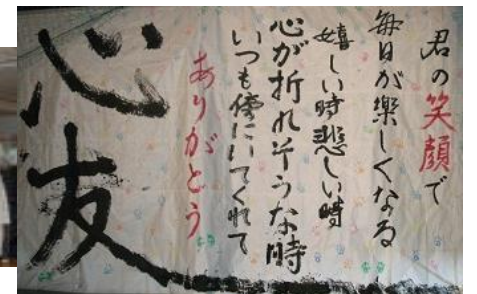 君の笑顔で
毎日が楽しくなる
嬉しい時悲しい時
心が折れそうな時
いつも傍にいてくれて
ありがとう
心友